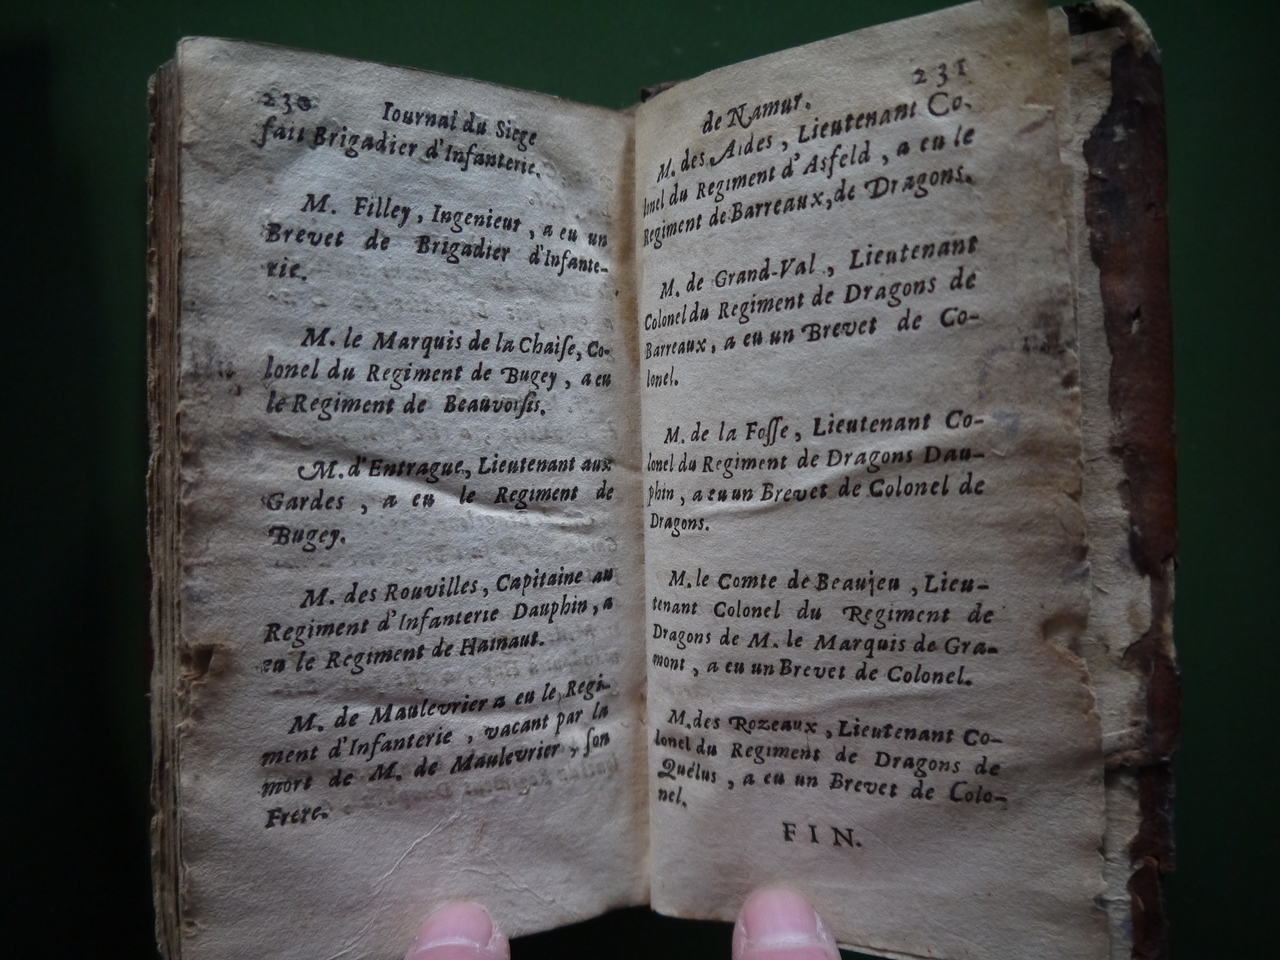 230 Iournal du Siege
fait Brigadier d'Infanterie.
M. Filley, Ingenieur, a eu un
Brevet de Brigadier d'Infante-
rie.
M. le Marquis de la Chaiſe, Co-
lonel du Regiment de Bugey, a eu
le Regiment de Beauvoiſis.
M. d'Entrague, Lieutenant aux
Gardes, a eu le Regiment de
Bugey.
M. des Rouvilles, Capitaine au
Regiment d'Infanterie Dauphin, a
eu le Regiment de Hainaut.
M. de Maulevrier a eu le Regi-
ment d'Infanterie, vacant par la
mort de M. de Maulevrier, ſon
Frere.
de Namur. 231
M. des Aides, Lieutenant Co-
lonel du Regiment d'Asfeld, a eu le
Regiment de Barreaux, de Dragons.
M. de Grand-Val, Lieutenant
Colonel du Regiment de Dragons de
Barreaux, a eu un Brevet de Co-
lonel.
M. de la Foſſe, Lieutenant Co-
lonel du Regiment de Dragons Dau-
phin, a eu un Brevet de Colonel de
Dragons.
M. le Comte de Beaujeu, Lieu-
tenant Colonel du Regiment de
Dragons de M. le Marquis de Gra-
mont, a eu un Brevet de Colonel.
M. des Rozeaux, Lieutenant Co-
lonel du Regiment de Dragons de
Quélus, a eu un Brevet de Colo-
nel.
FIN.